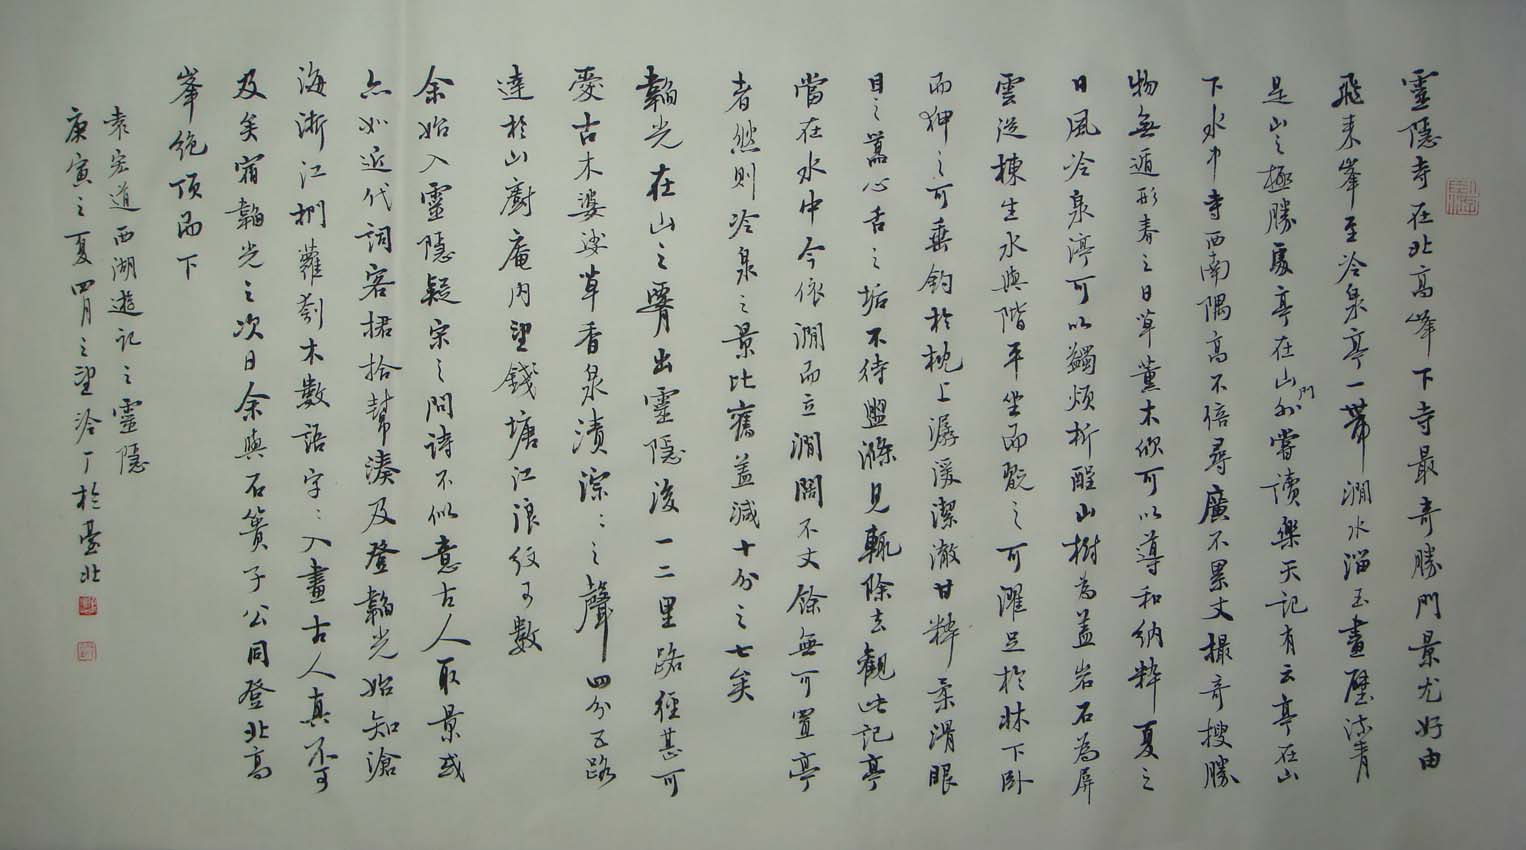 靈隱寺在北高峯下寺最奇勝門景尤好由
飛来峯至冷泉亭一帶澗水溜玉畫壁流青
是山之極勝處亭在山門外嘗讀樂天記有云亭在山
下水中寺西南隅高不倍尋廣不累丈撮奇搜勝
物無遁形春之日草薰木欣可以導和納粹夏之
日風冷泉渟可以蠲煩析酲山樹為蓋岩石為屏
雲從棟生水與階平坐而翫之可濯足於牀下卧
而狎之可垂釣於枕上潺湲潔澈甘粹柔滑眼
目之囂心舌之垢不待盥滌見輒除去觀此記亭
當在水中今依澗而立澗闊不丈餘無可置亭
者然則冷泉之景比舊蓋減十分之七矣
韜光在山之腰出靈隱後一二里路徑甚可
愛古木婆娑草香泉漬淙〻之聲四分五路
達於山廚庵內望錢塘江浪紋可數
余始入靈隱疑宋之問詩不似意古人取景或
亦如近代詞客捃拾幫湊及登韜光始知滄
海浙江捫蘿刳木數語字〻入畫古人真不可
及矣宿韜光之次日余與石簣子公同登北高
峯絶頂而下
袁宏道西湖遊記之靈隱
庚寅之夏四月之望 丁於臺北